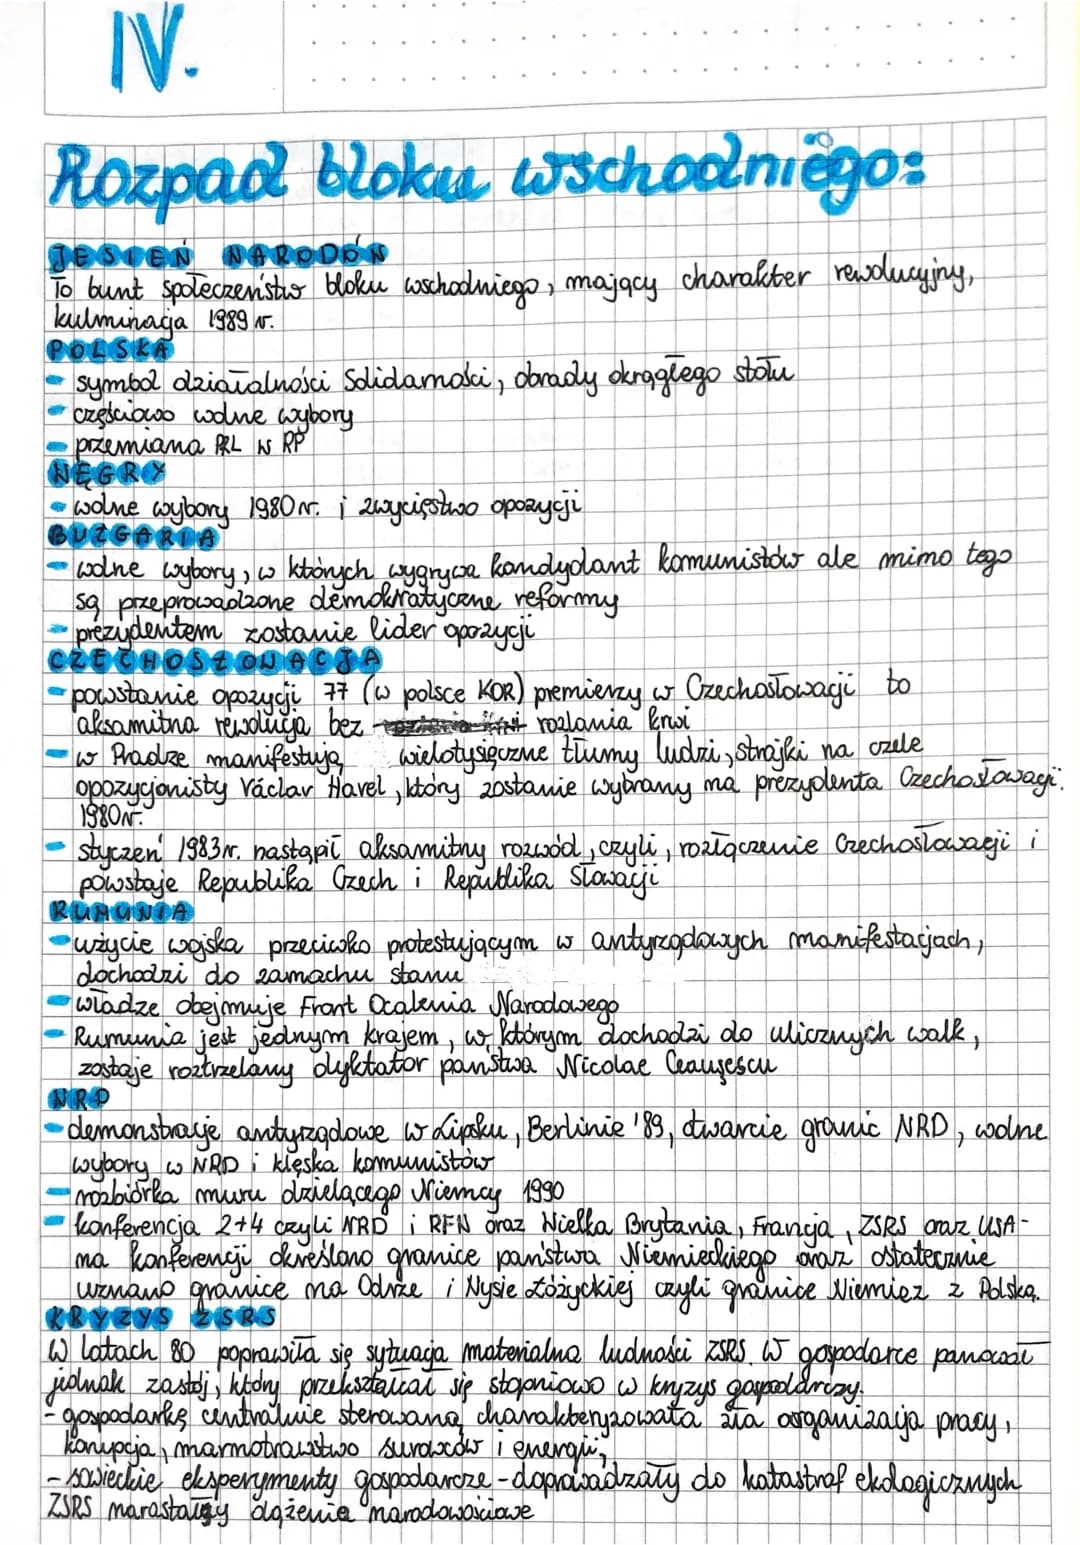 IV.
Rozpad bloku wschodniego:
JESIEŃ NARODÓW
To bunt społeczeństw bloku wschodniego, mający charakter rewolucyjny,
kulminacja 1989 r.
POLSKA
- symbol działalności Solidarności, obrady okrągłego stołu
- częściowo wolne wybory
- przemiana PRL W RP
WĘGRY
- wolne wybory 1980r. i zwycięstwo opozycji
BUŁGARIA
- wolne wybory, w których wygrywa kandydant komunistów ale mimo tego
są przeprowadzone demokratyczne reformy
- prezydentem zostanie lider opozycji
CZECHOSŁOWACJA
- powstanie opozycji 77 (w polsce KOR) premierzy w Czechosłowacji to
aksamitna rewolucja bez rozlania krwi
- w Pradze manifestują wielotysięczne tłumy ludzi, strajki na czele
opozycjonisty Václav Havel, który zostanie wybrany na prezydenta Czechosłowacji.
1980r.
- styczeń 1983r. nastąpił aksamitny rozwód, czyli, rozłączenie Czechosłowacji i
powstaje Republika Czech i Republika Słowacji
RUMUNIA
- użycie wojska przeciwko protestującym w antyrządowych manifestacjach,
dochodzi do zamachu stanu
- władze obejmuje Front Ocalenia Narodowego
- Rumunia jest jednym krajem, w którym dochodzi do ulicznych walk,
zostaje roztrzelany dyktator państwa Nicolae Ceaușescu
NRD
- demonstracje antyrządowe w Lipsku, Berlinie '89, otwarcie granic NRD, wolne
wybory w NRD i klęska komunistów
- rozbiórka muru dzielącego Niemcy 1990
- konferencja 2+4 czyli NRD i RFN oraz Wielka Brytania, Francja, ZSRS oraz USA -
na konferencji określono granice państwa Niemieckiego oraz ostatecznie
uznano granice na Odrze i Nysie Łóżyckiej czyli granice Niemiec z Polską.
KRYZYS ZSRS
W latach 80 poprawiła się sytuacja materialna ludności ZSRS. W gospodarce panował
jednak zastój, który przekształcał się stopniowo w kryzys gospodarczy.
- gospodarkę centralnie sterowaną charakteryzowała zła organizacja pracy,
korupcja, marnotrawstwo surowców i energii,
- sowieckie eksperymenty gospodarcze - doprowadzały do katastrof ekologicznych
ZSRS narastały dążenia narodowościowe